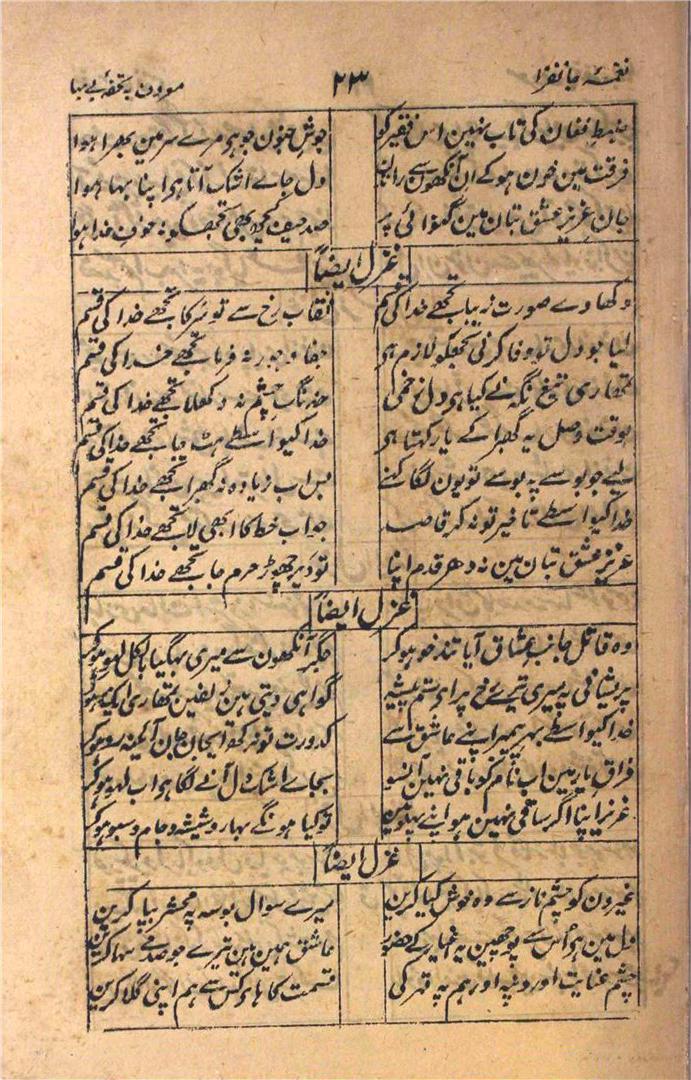 نغمۂ جانفزا ۲۳ موروف بہ تحفۂ بے بہا
ضبطِ فغان کی تاب نہین اس فقیر کو جوشِ جنون جو ہو مرے سر مین بھرا ہوا
فرقت مین خون ہو کے ان آنکھون سے دل جاے اشک آتا ہو اپنا بہا ہوا
جان عزیز عشق بتان مین گنوائی پر صد حیف کچھ بھی تجھکو نہ خوف خدا ہوا
غزل ایضاً
دکھا دے صورت زیبا تجھے خدا کی قسم نقاب رخ سے تو سرکا تجھے خدا کی قسم
لیا جو دل تو وفا کرنی تجھکو لازم ہو جفا و جور نہ فرما تجھے خدا کی قسم
تمھاری تیغ نگہ نے کیا ہو دل زخمی خدنگ چشم نہ دکھلا تجھے خدا کی قسم
بوقت وصل یہ گھبرا کے یار کہتا ہو خدا کیواسطے ہٹ جا تجھے خدا کی قسم
لیے جو بوسے پہ بوسے تو یون لگا کہنے بس اب زیادہ نہ گھبرا تجھے خدا کی قسم
خدا کیواسطے تاخیر تو نہ کر قاصد جواب خط کا ابھی لا تجھے خدا کی قسم
عزیز عشق بتان مین نہ دھر قدم اپنا تو دیر چھوڑ حرم جا تجھے خدا کی قسم
غزل ایضاً
وہ قاتل جانب عشاق آیا تند خو ہو کر جگر آنکھون سے میری بہگیا بالکل لہو ہو کر
پریشانی پہ میری تیرے رخ پر او ستم پیشہ گواہی دیتی ہین زلفین تمھاری ہو کر
خدا کیواسطے بہر پیمبر اپنے عاشق سے کدورت تو نہ رکھ ایجان جان آئینہ رو ہو کر
فراق یار مین اب نام کو باقی نہین آنسو بجاے اشک دل آنے لگا ہو اب لہو ہو کر
عزیز اپنا اگر ساقی نہین ہو اپنے پہلو مین تو کیا ہونگے بہار و شیشہ و جام و سبو ہو کر
غزل ایضاً
غیرون کو چشم ناز سے وہ خوش کیا کرین میرے سوال بوسہ پہ محشر بپا کرین
دل مین ہو اُس سے پوچھین یہ اغیار کے حضور عاشق ہمین ہین تیرے جو صدمے سہا کرین
چشم عنایت اورون پہ اور ہم پہ قہر کی قسمت کا ہاے کس سے ہم اپنی گلا کرین